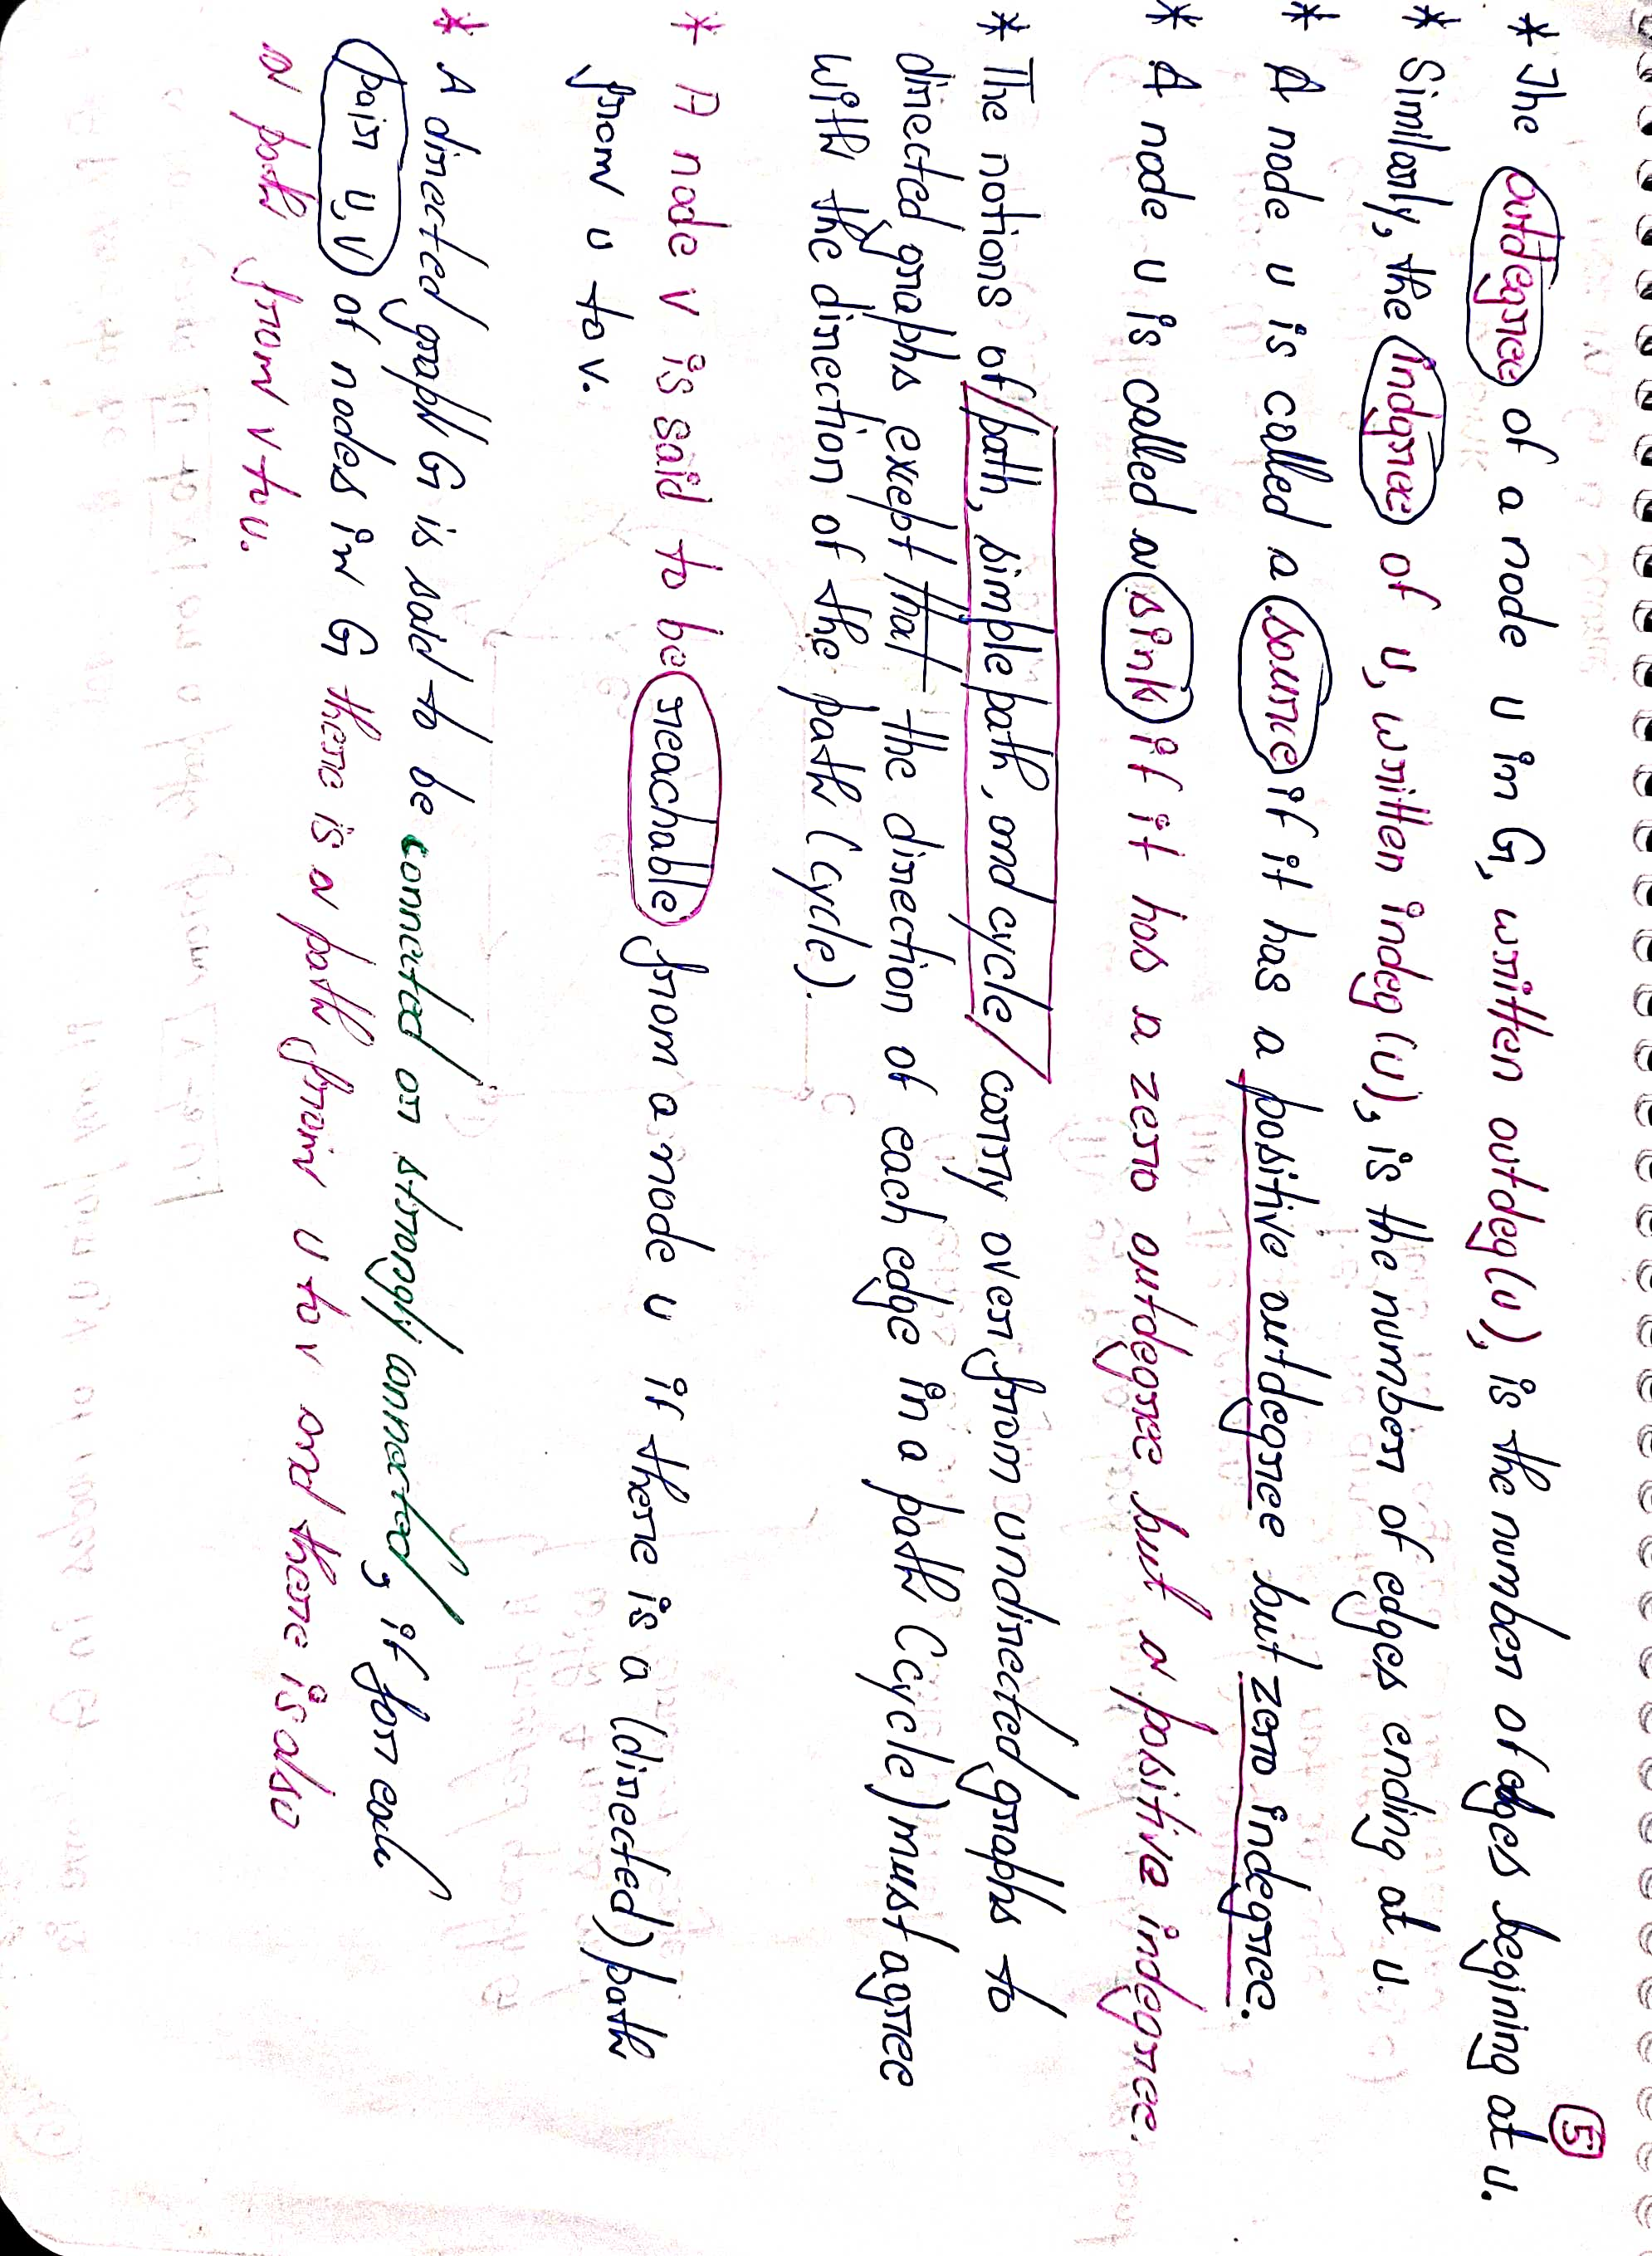 5
* The outdegree of a node u in G, written outdeg(u), is the number of edges begining at u.
* Simillarly, the indgree of u, written indeg(u), is the number of edges ending at u.
* A node u is called a source if it has a positive outdegree but zero indegree.
* A node u is called a sink if it has a zero outdegree but a positive indegree.
* The notions of path, simple path, and cycle carry over from undirected graphs to
directed graphs exept that the direction of each edge in a path (cycle) must agree
with the direction of the path (cycle).
* A node v is said to be reachable from a node u if there is a (directed) path
from u to v.
* A directed graph G is said to be connected or strongly connected, if for each
pair u,v of nodes in G there is a path from u to v and there is also
a path from v to u.